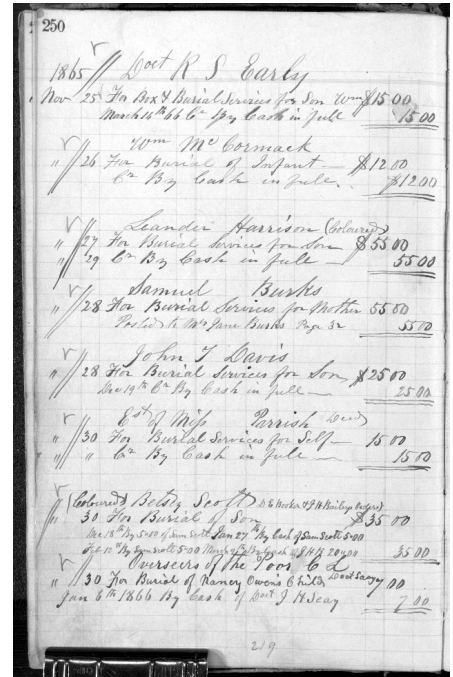 250
1865 Doct R S Early
Nov 25 For Box & Burial Services for Son Wm $15 00
March 14th 66 Cr By Cash in full 15 00
Wm McCormack
" 26 For Burial of Infant — $12 00
Cr By Cash in full. $12 00
Leander Harrison (Coloured)
" 27 For Burial Services for Son $55 00
" 29 Cr By Cash in full — 55 00
Samuel Burks
" 28 For Burial Services for Mother 55 00
Posted to Mrs Jane Burks Page 32 55 00
John T Davis
" 28 For Burial Services for Son $25 00
Dec 19th Cr By Cash in full — 25 00
Est of Miss Parrish Decd
" 30 For Burial Services for Self — 15 00
" " Cr By Cash in full — 15 00
(Coloured) Betsy Scott D E Booker & J H Baileys Orders)
" 30 For Burial of Son $35 00
Dec 18th By 5=00 of Sam Scott Jan 27th By Cash of Sam Scott 5=00
Feb 12th By Sam Scott 5=00 By Cash of J H B 20=00 35 00
Overseers of the Poor C L
" 30 For Burial of Nancy Owens Child Doct Seay 7 00
Jan 6th 1866 By Cash of Doct J H Seay 7 00
219